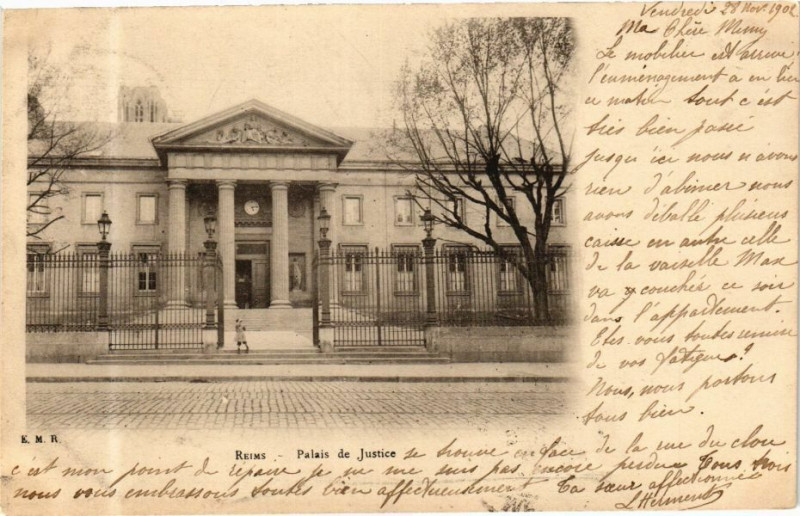 Vendredi 28 Nov. 1902
Ma Chère Mimy
Le mobilier est arrivé
l'emménagement à eu lieu
ce matin tout c'est
très bien passé
jusqu'ici nous n'avons
rien d'abimer nous
avons déballé plusieurs
caisse en autre celle
de la vaisselle Max
va y couché ce soir
dans l'appartement.
Etes vous toutes remise
de vos fatigues?
Nous, nous portons
tous bien.
E. M. R.
REIMS - Palais de Justice se trouve en face de la rue du clou
c'est mon point de repaire je ne me suis pas encore perdue Tous trois
nous vous embrassons toutes bien affectueusement Ta sœur affectionnée
L Herment